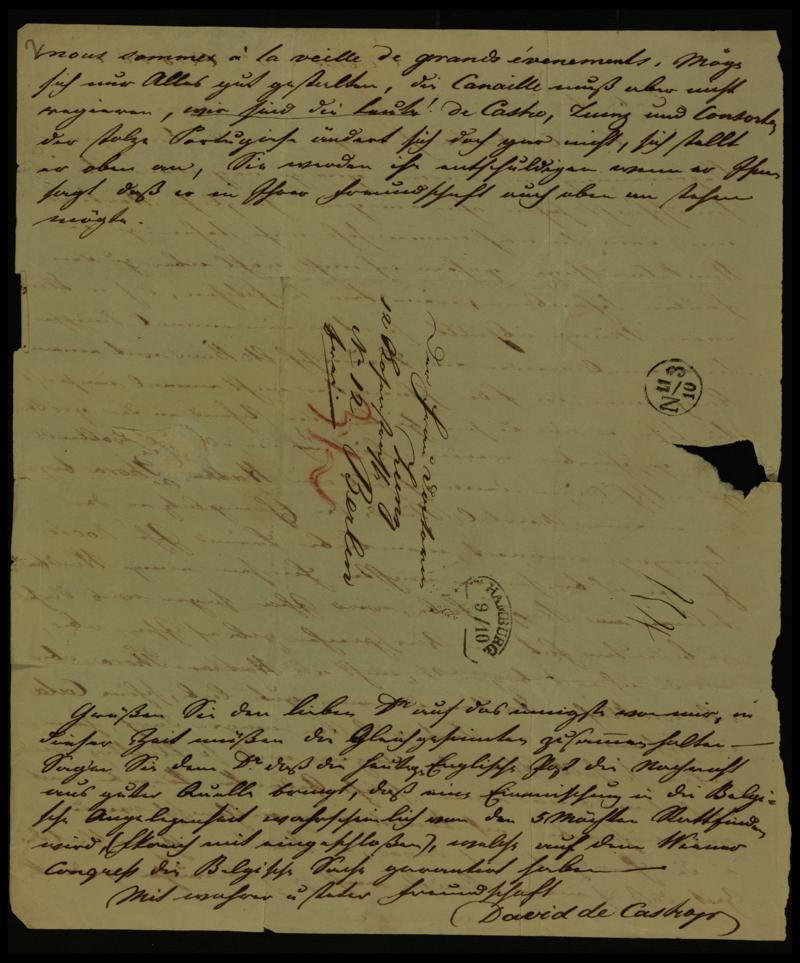 nous sommes à la veille de grands évenements. Möge
sich nur Alles gut gestalten, die Canaille muß aber nicht
regieren, wir sind die Leute! de Castro, Zunz und Consorten,
der stolze Portugiese ändert sich doch gar nicht, sich stellt
er oben an, Sie werden ihn entschuldigen wenn er Ihnen
sagt daß er in Ihrer Freundschaft auch oben an stehen
mögte.
Zunz
N 12 Berlin
3½
N 11 3/10
HAMBURG
9/10
Grüßen Sie den lieben Dr auf das innigste von mir, in
dieser Zeit müßen die Gleichgesinnten zusammenhalten —
Sagen Sie dem Dr daß die heutige Englische Post die Nachricht
aus guter Quelle bringt, daß eine Einmischung in die Belgi-
sche Angelegenheit wahrscheinlich von den 5 Mächten Stattfinden
wird, (Frkreich mit eingeschloßen), welche auf dem Wiener
Congreß die Belgische Sache garantirt haben —
Mit wahrer u steter Freundschaft
David de Castro